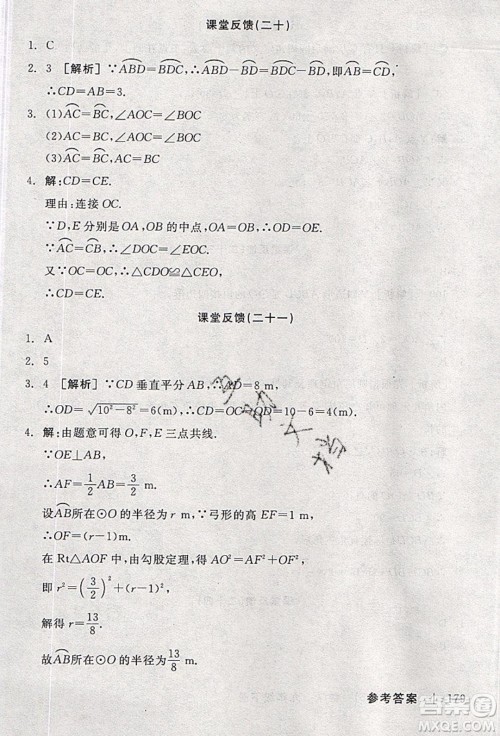 课堂反馈(二十)
1. C
2. 3 [解析] ∵A͡BD=B͡DC,∴A͡BD-B͡D=B͡DC-B͡D,即A͡B=C͡D,
∴CD=AB=3.
3. (1)A͡C=B͡C,∠AOC=∠BOC
(2)AC=BC,∠AOC=∠BOC
(3)A͡C=B͡C,AC=BC
4. 解:CD=CE.
理由:连接 OC.
∵D,E 分别是 OA,OB 的中点,OA=OB,∴OD=OE.
∵A͡C=C͡B,∴∠DOC=∠EOC.
又∵OC=OC,∴△CDO≌△CEO,
∴CD=CE.
课堂反馈(二十一)
1. A
2. 5
3. 4 [解析] ∵CD 垂直平分 AB,∴AD=8 m,
∴OD=√(10²-8²)=6(m),∴CD=OC-OD=10-6=4(m).
4. 解:由题意可得 O,F,E 三点共线.
∵OE⊥AB,
∴AF=1/2 AB=3/2 m.
设A͡B所在⊙O的半径为 r m,∵弓形的高 EF=1 m,
∴OF=(r-1)m.
在 Rt△AOF 中,由勾股定理,得 AO²=AF²+OF²,
即 r²=(3/2)²+(r-1)²,
解得 r=13/8.
故A͡B所在⊙O的半径为 13/8 m.
参考答案 179